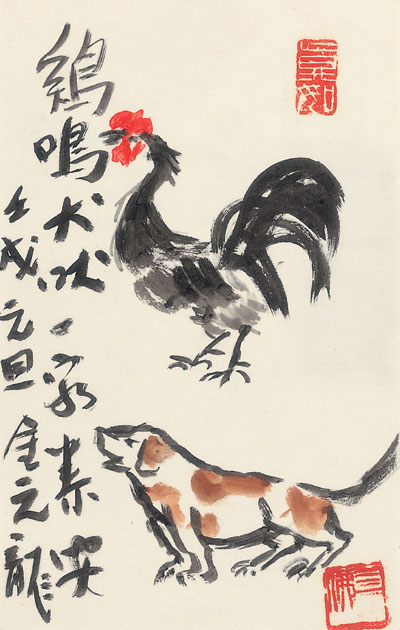 鷄鳴犬吠一家泰安
壬戌元旦 金元龍